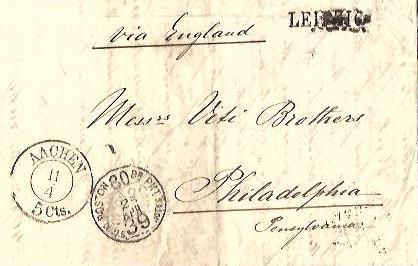 via England
LEIPZIG
Messrs Viti Brothers
Philadelphia
Pensylvania
AACHEN
11
4
5 Cts.
BOSTON BR. PKT.
30
25
APR
59